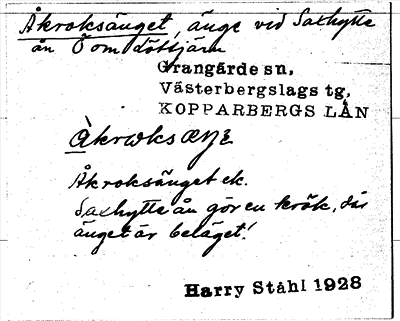 Åkroksänget, änge vid Saxhytte
ån Ö om Döttjärn
Grangärde sn,
Västerbergslags tg,
KOPPARBERGS LÄN
Åkroksänget ek.
Saxhytte ån gör en krök, där
änget är beläget!
Harry Ståhl 1928